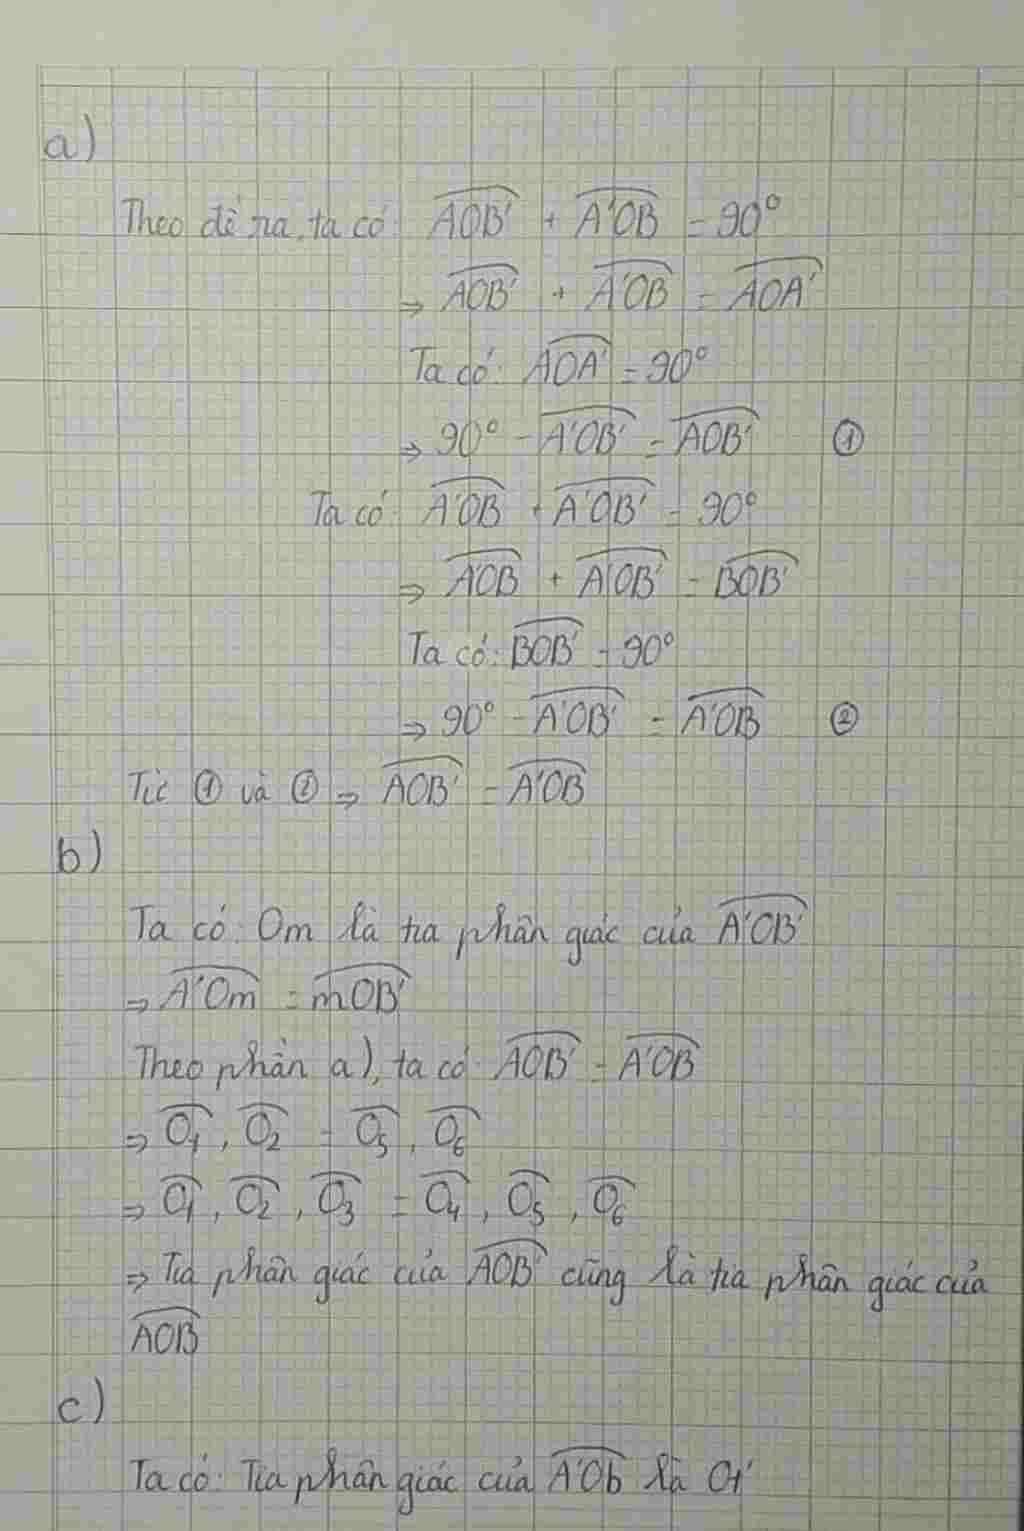 a)
Theo đề ra, ta có: AOB' + A'OB = 90°
⇒ AOB' + A'OB = AOA'
Ta có: AOA' = 90°
⇒ 90° - A'OB' = AOB' ①
Ta có: A'OB + A'OB' = 90°
⇒ A'OB + A'OB' = BOB'
Ta có: BOB' = 90°
⇒ 90° - A'OB' = A'OB ②
Từ ① và ② ⇒ AOB' = A'OB
b)
Ta có: Om là tia phân giác của A'OB'
⇒ A'Om = mOB'
Theo phần a), ta có: AOB' = A'OB
⇒ O1, O2 = O5, O6
⇒ O1, O2, O3 = O4, O5, O6
⇒ Tia phân giác của AOB' cũng là tia phân giác của
AOB
c)
Ta có: Tia phân giác của A'Ob là